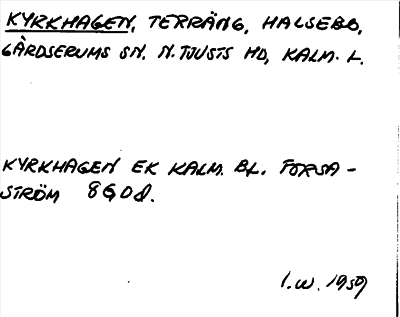 KYRKHAGEN, TERRÄNG, HALSEBO,
GÅRDSERUMS SN. N. TJUSTS HD, KALM. L.
KYRKHAGEN EK KALM. BL. FORSA-
STRÖM 8G0d.
I.W. 1959